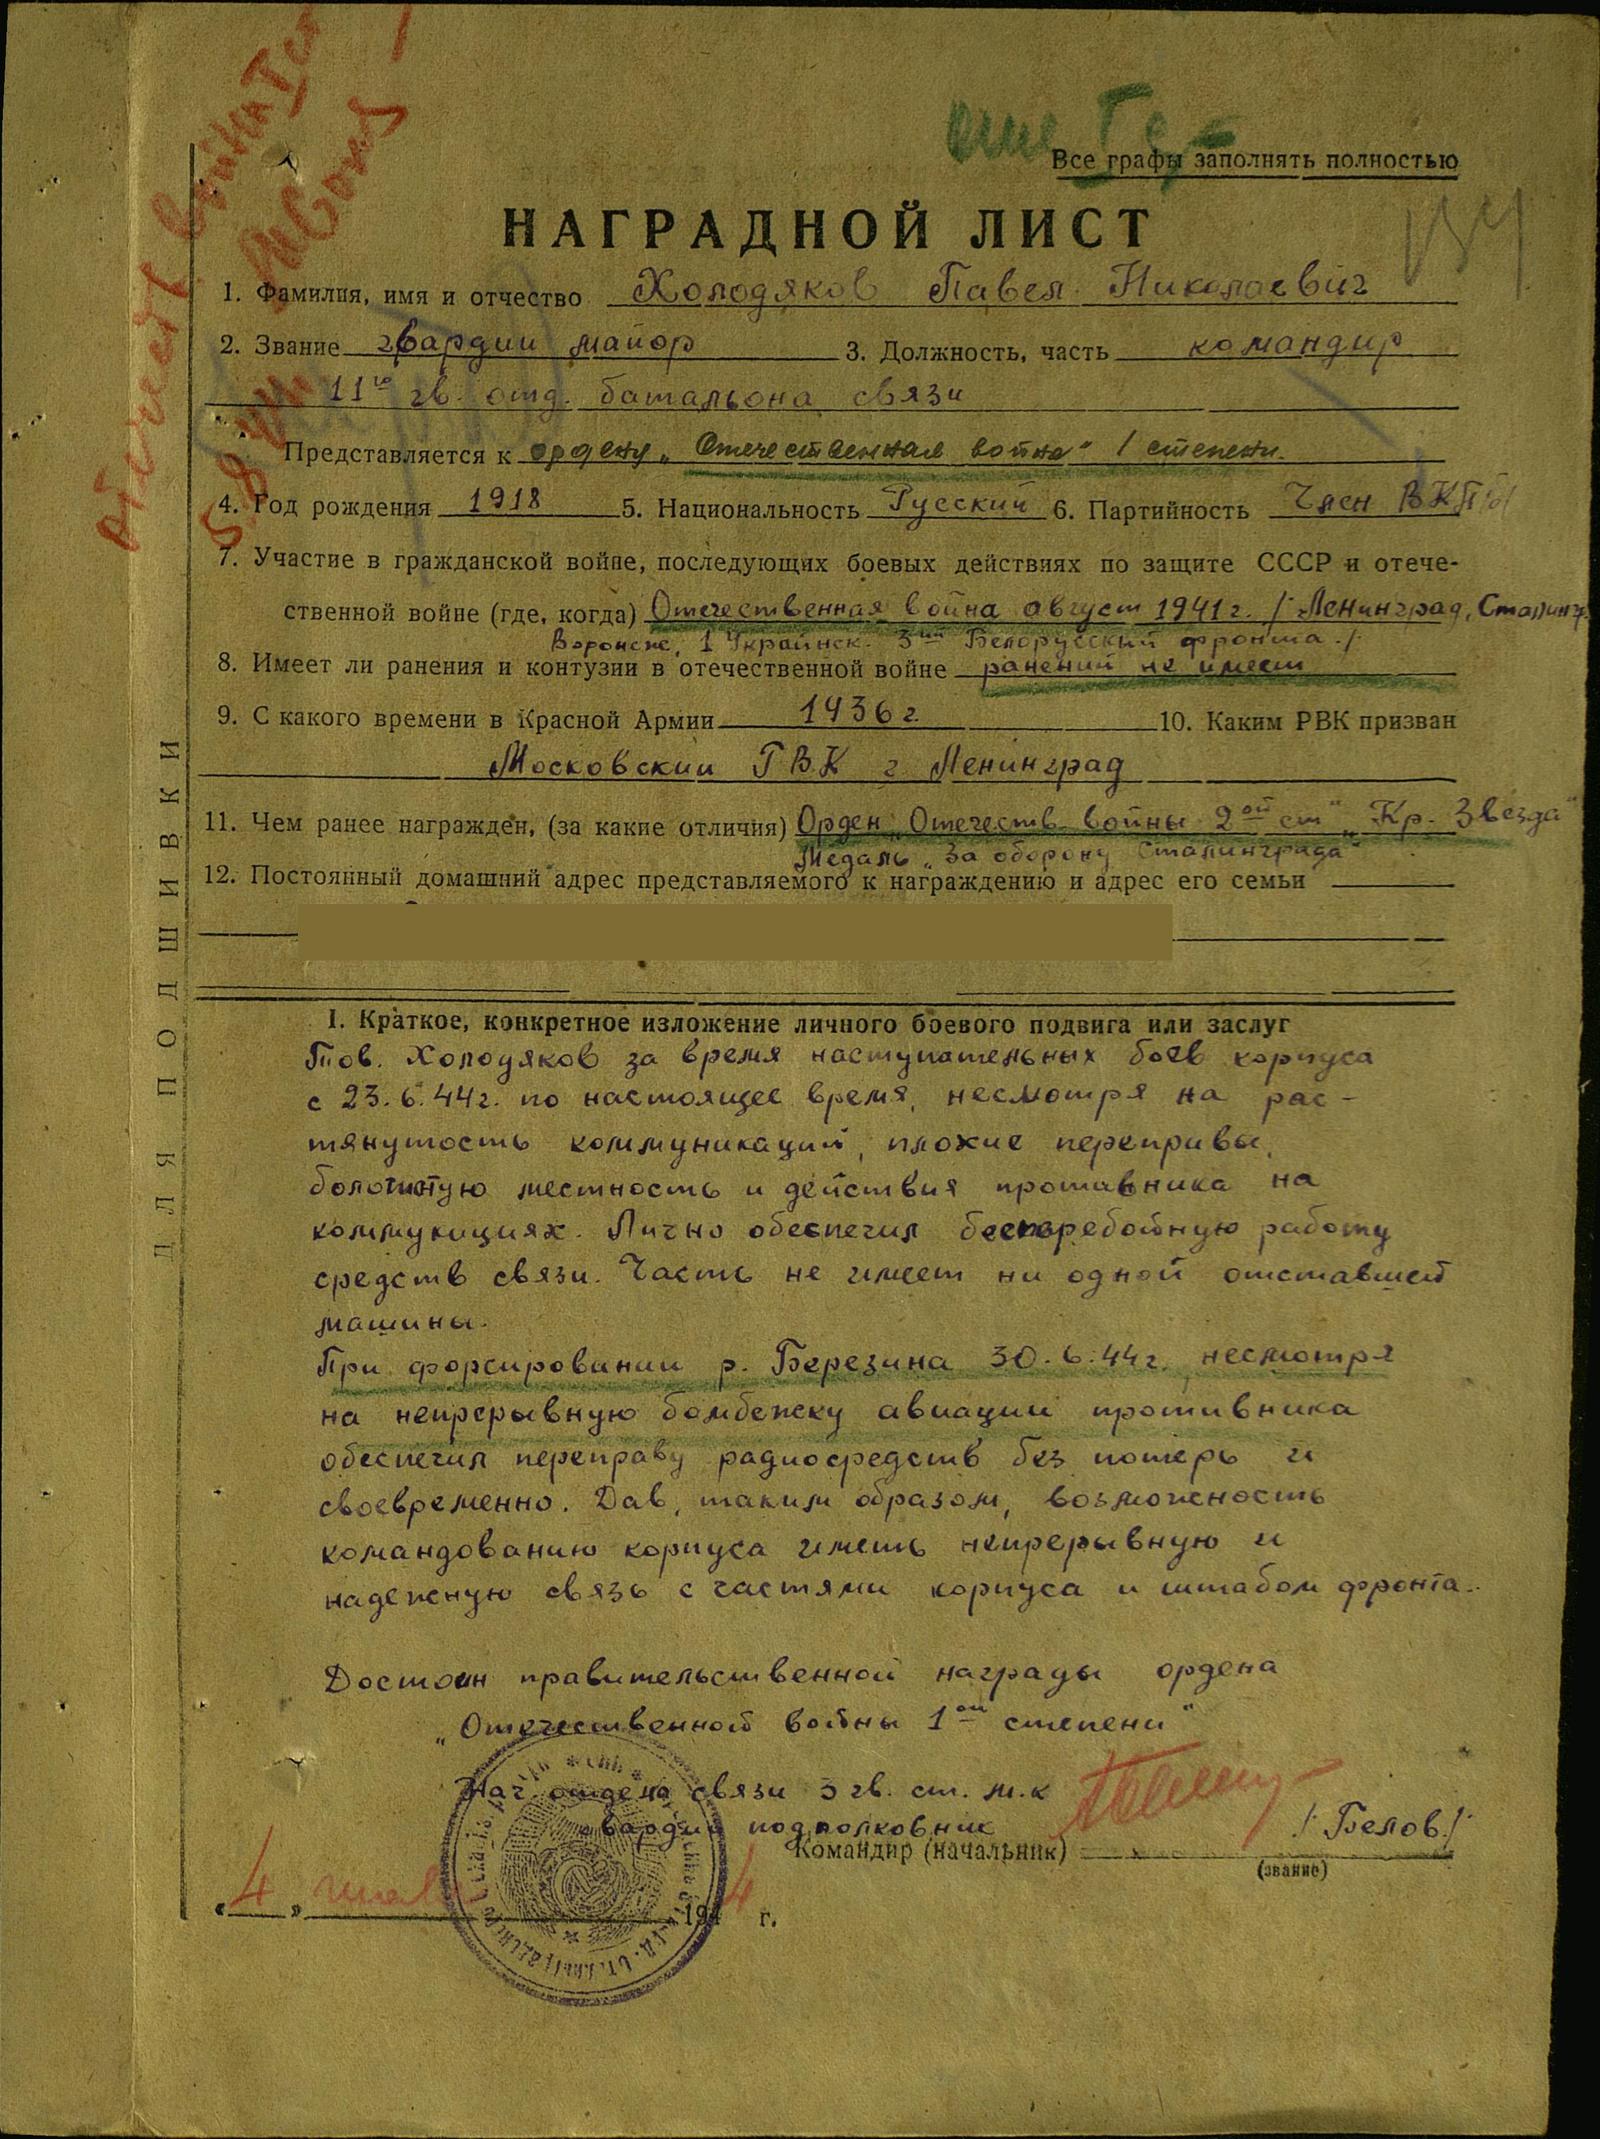 Все графы заполнять полностью
НАГРАДНОЙ ЛИСТ
1. Фамилия, имя и отчество Холодяков Павел Николаевич
2. Звание гвардии майор 3. Должность, часть командир
11го гв. отд. батальона связи
Представляется к ордену „Отечественная война" I степени.
4. Год рождения 1918 5. Национальность Русский 6. Партийность Член ВКП(б)
7. Участие в гражданской войне, последующих боевых действиях по защите СССР и отече-
ственной войне (где, когда) Отечественная война август 1941 г. /Ленинград, Сталингр.
Воронеж, 1 Украинск. 3ий Белорусский фронта./
8. Имеет ли ранения и контузии в отечественной войне ранений не имеет
9. С какого времени в Красной Армии 1936 г. 10. Каким РВК призван
Московский РВК г Ленинград
11. Чем ранее награжден, (за какие отличия) Орден „Отечеств. войны 2ой ст" „Кр. Звезда"
Медаль „За оборону Сталинграда"
12. Постоянный домашний адрес представляемого к награждению и адрес его семьи
I. Краткое, конкретное изложение личного боевого подвига или заслуг
Тов. Холодяков за время наступательных боев корпуса
с 23.6.44г. по настоящее время, несмотря на рас-
тянутость коммуникаций, плохие переправы,
болотистую местность и действия противника на
коммукициях. Лично обеспечил бесперебойную работу
средств связи. Часть не имеет ни одной отставшей
машины.
При форсировании р. Березина 30.6.44г. несмотря
на непрерывную бомбежку авиации противника
обеспечил переправу радиосредств без потерь и
своевременно. Дав, таким образом, возможность
командованию корпуса иметь непрерывную и
надежную связь с частями корпуса и штабом фронта.
Достоин правительственной награды ордена
„Отечественной войны 1ой степени"
Нач. отдела связи 3 гв. ст. м.к
гвардии подполковник
Командир (начальник) /Белов/
(звание)
«4» июля 1944 г.
ДЛЯ ПОДШИВКИ